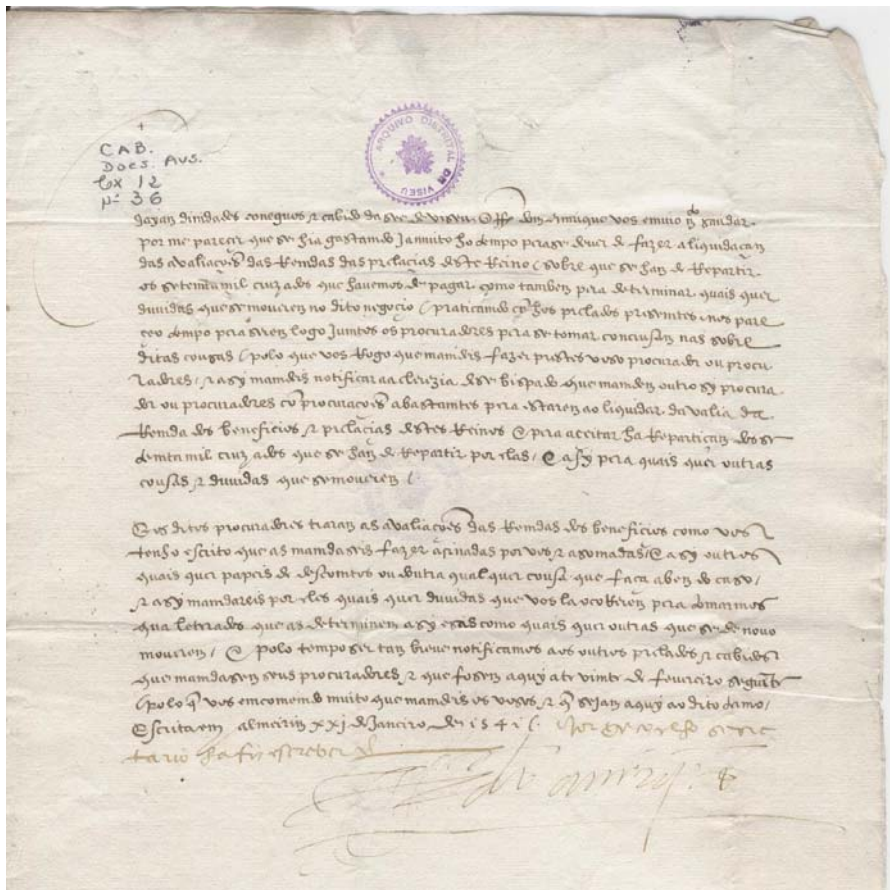 +
CAB.
DOCS. AVS.
Cx 12
Nº 36
ARQUIVO DISTRITAL DE VISEU
dayam dinidades coneguos & cabido da see de viseu O Iffe dom anrrique vos emuio m saudar.
por me pareçer que se hia gastamdo Ja muito ho tempo pera se dever de fazer a liquidaçam
das avaliações das Remdas das prelacias deste Reino / sobre que se ham de Repartir
os setemta mil cruzados que havemos de pagar como tambem pera determinar quais quer
duuidas que se mouerem no dito negocio / praticamdo com hos prelados presemtes nos pare
ceo tempo pera serem logo Juntos os procuradores pera se tomar conclusam nas sobre
ditas cousas / polo que vos Rogo que mamdeis fazer prestes voso procurador ou procu
radores / & asy mamdeis notificar aa clerezia dese bispado que mamdem outro sy procura
dor ou procuradores com procurações abastamtes pera estarem ao liquidar da valia da
Remda dos beneficios & prelacias destes Reinos E pera aceitar ha Repartiçam dos se
temta mil cruzados que se ham de Repartir por elas / E assy pera quais quer outras
cousas & duuidas que se mouerem /
E os ditos procuradores traram as avaliações das Remdas dos beneficios como vos
tenho escrito que as mamdaseis fazer asinadas por vos & asomadas / E asy outros
quais quer papeis de descomtos ou doutra qualquer cousa que faça a bem do caso /
& asy mamdareis por eles quais quer duuidas que vos la ocorerem pera tomarmos
qua leterados que as determinem asy esas como quais quer outras que se de novo
mouerem / E polo tempo ser tam breue notificamos aos outros prelados & cabidos
que mamdasem seus procuradores & que fosem aquy ate vimte de feuereiro seguimte
/ polo que vos emcomemdo muito que mamdeis os vosos & que sejam aquy ao dito tempo /
Escrita em almeirim xxj de Janeiro de 1541 /. Jorge coelho secre
tario ha fez escreuer